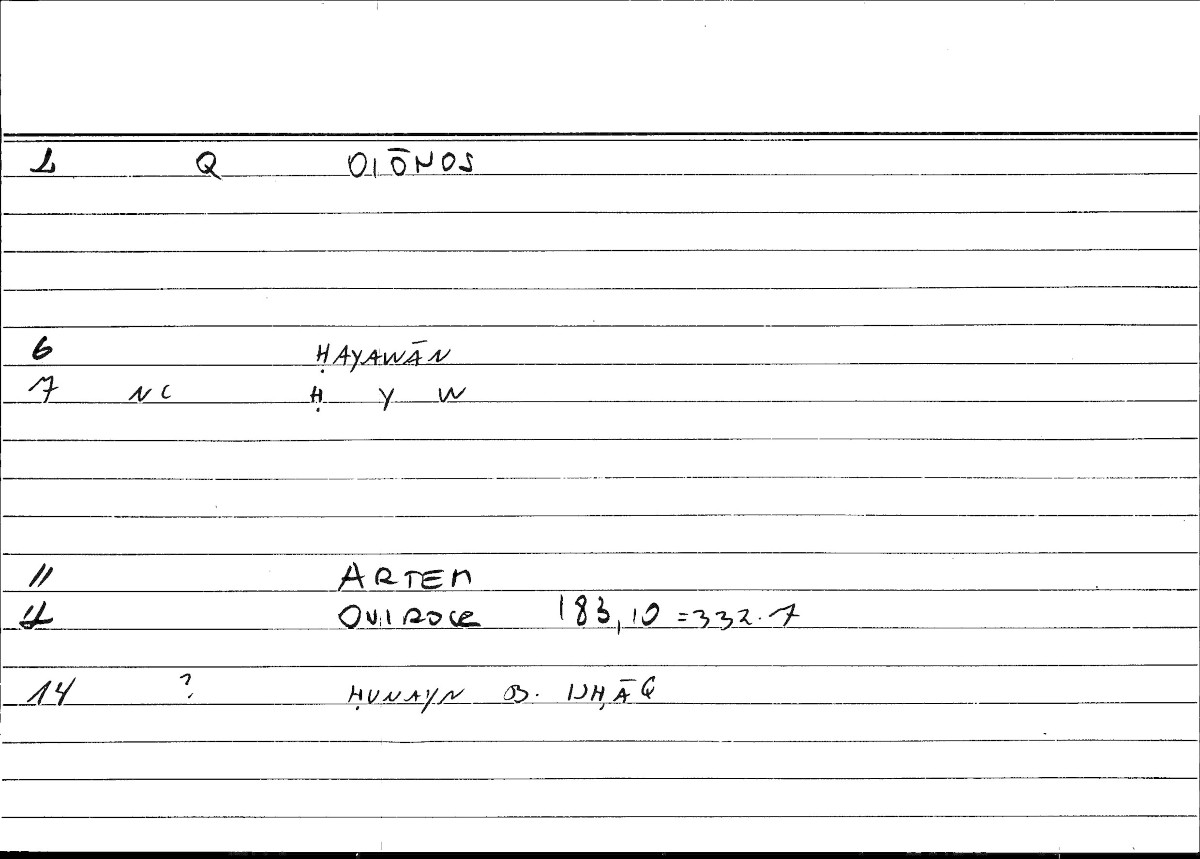 1 Q OIŌNOS
6 ḤAYAWĀN
7 NC Ḥ Y W
11 ARTEM
12 ONIROCR 183,10 = 332.7
14 ? ḤUNAYN B. ISḤĀQ